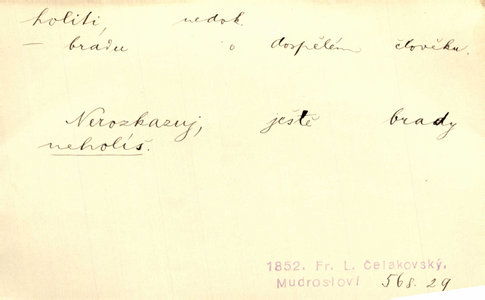 holiti, nedok.
– bradu o dospělém člověku.
Nerozkazuj, ještě brady
neholíš.
1852. Fr. L. Čelakovský.
Mudrosloví 568.29